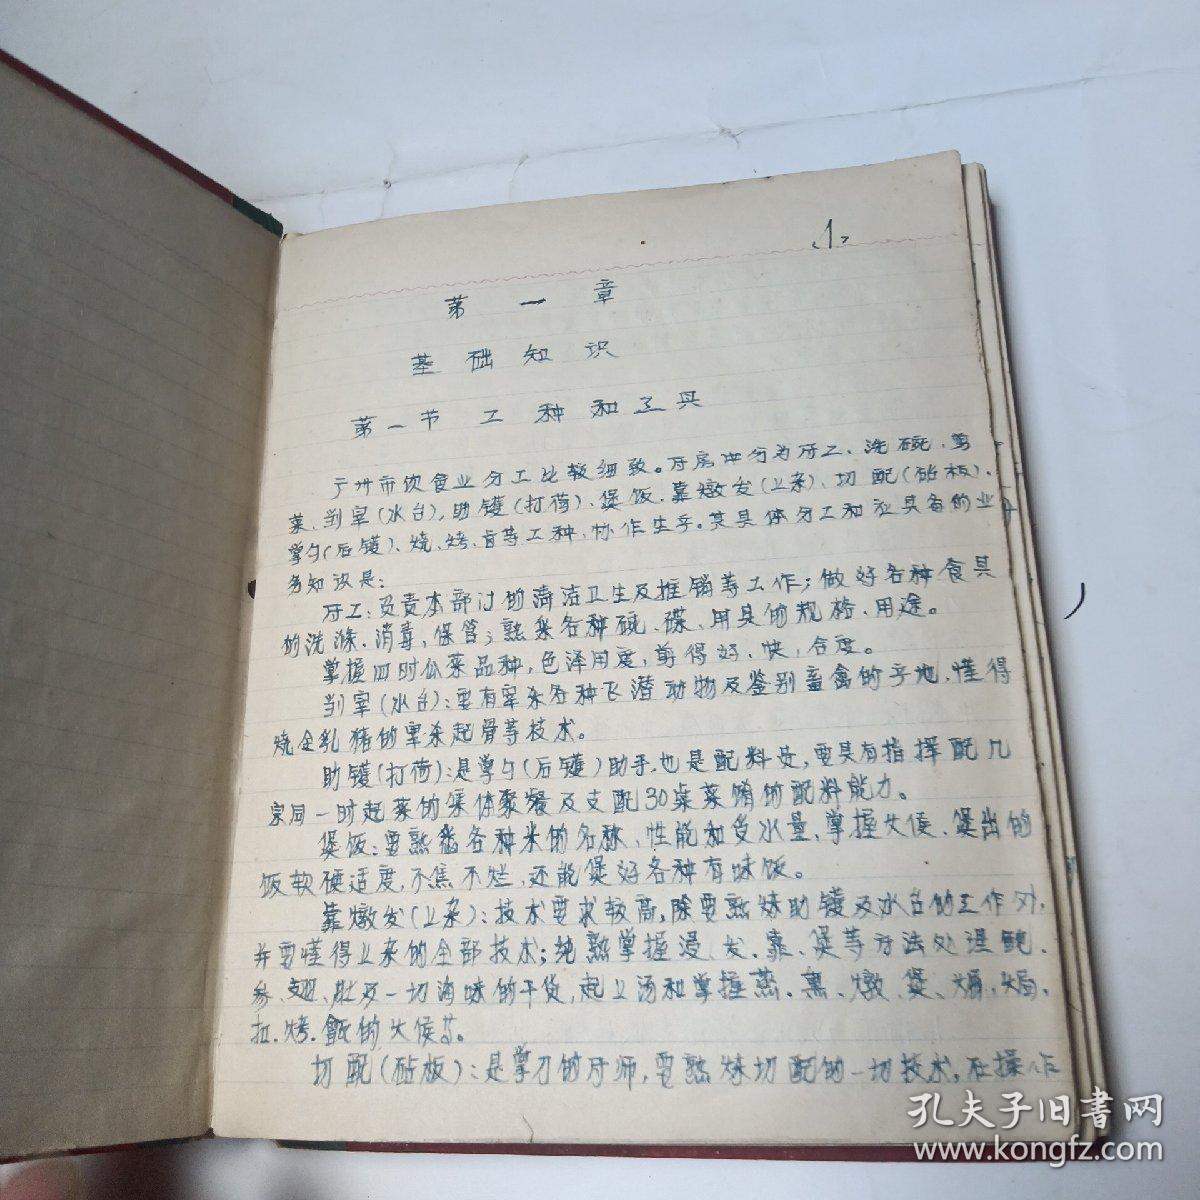 1
第一章
基础知识
第一节 工种和工具
广州市饮食业分工比较细致。厨房中分为厨工、洗碗、剪
菜、㓥宰(水台)、助镬(打荷)、煲饭、靠燉发(上杂)、切配(砧板)、
掌勺(后镬)、烧、烤、卤等工种,协作生产。其具体分工和应具备的业
务知识是:
厨工:负责本部门的清洁卫生及推销等工作;做好各种食具
的洗涤、消毒、保管;熟悉各种碗、碟、用具的规格、用途。
掌握四时瓜菜品种,色泽用度,剪得好、快,合度。
㓥宰(水台):要有宰杀各种飞潜动物及鉴别畜禽的产地,懂得
烧全乳猪的宰杀起骨等技术。
助镬(打荷):是掌勺(后镬)助手,也是配料员,要具有指挥配几
家同一时起菜的集体聚餐及支配30桌菜肴的配料能力。
煲饭:要熟悉各种米的名称、性能和受水量,掌握火候、煲出的
饭软硬适度,不焦不烂,还能煲好各种有味饭。
靠燉发(上杂):技术要求较高,除要熟炼助镬及水台的工作外,
并要懂得上杂的全部技术;纯熟掌握浸、发、靠、煲等方法处理鲍、
参、翅、肚及一切海味的干货,起上汤和掌握蒸、熏、燉、煲、焖、焗、
扣、烤、
的火候等。
切配(砧板):是掌刀的厨师,要熟炼切配的一切技术,在操作
孔夫子旧书网
www.kongfz.com